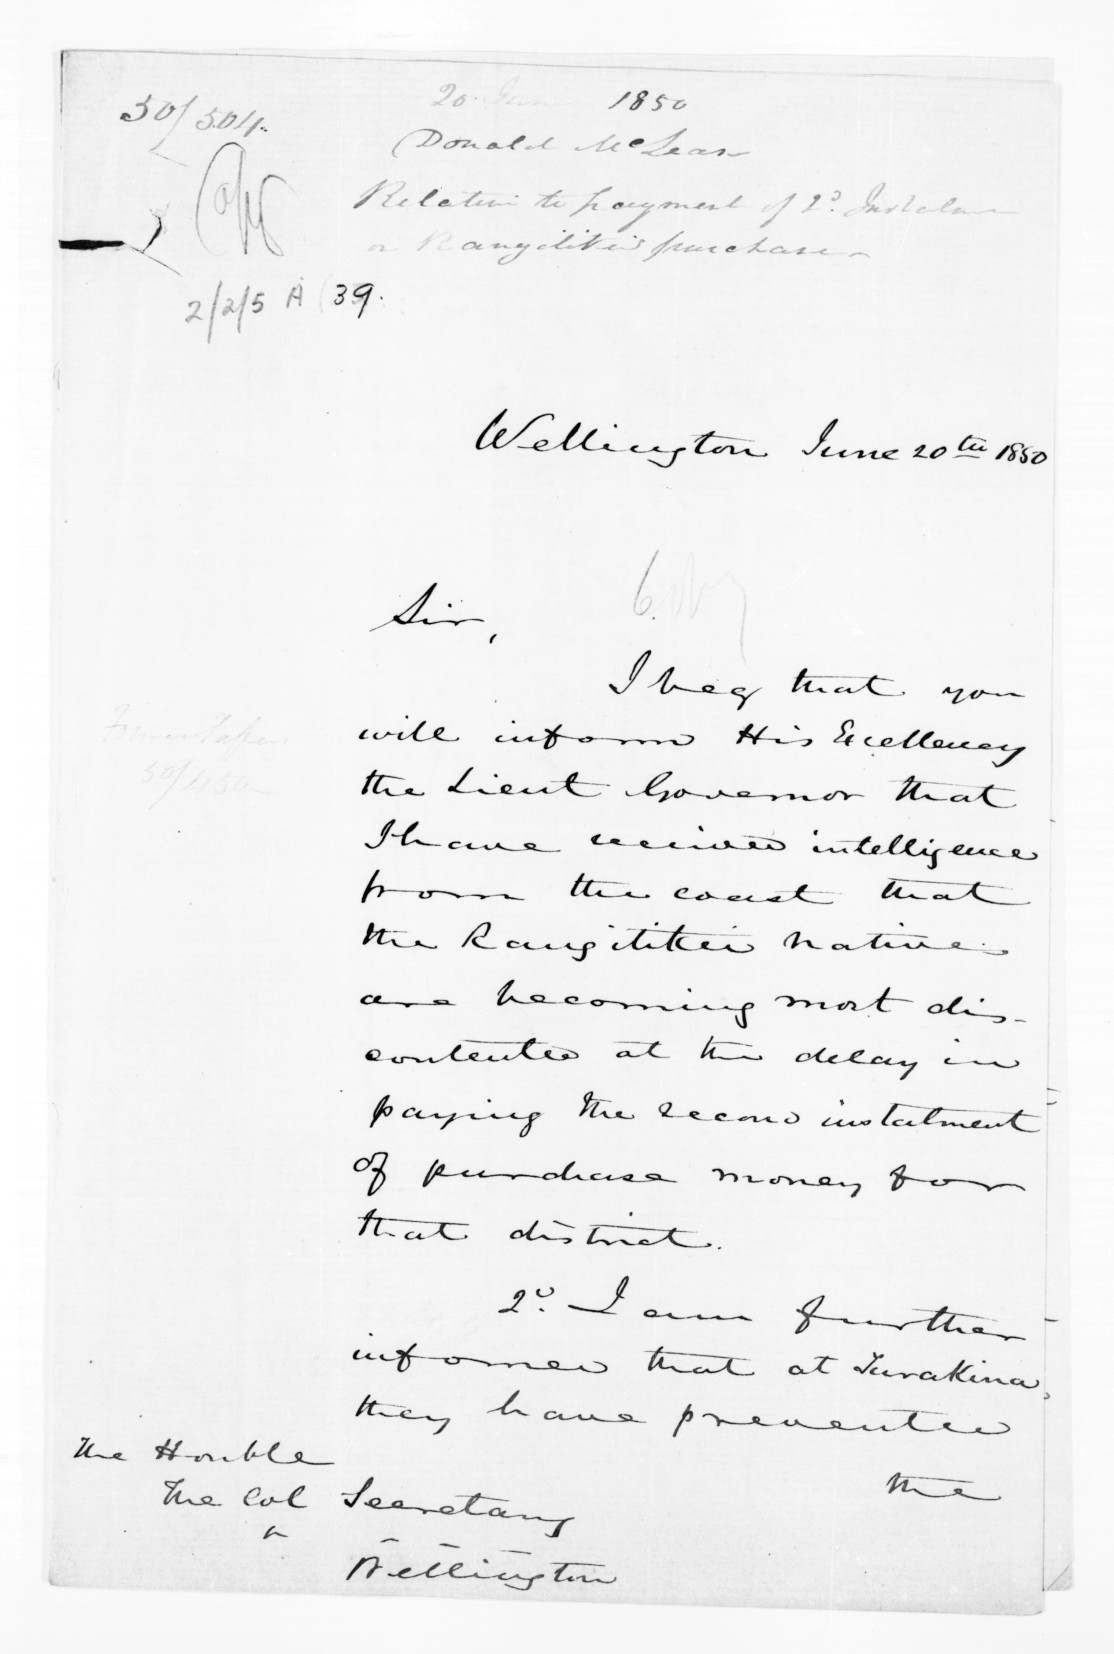 50/504.
20 June 1850
Donald McLean
Relative to payment of 2d. Instalment
on Rangitikei purchase
Copy
2/2/5 A (39.
Wellington June 20th 1850
Copy
Sir,
I beg that you
will inform His Excellency
the Lieut Governor that
I have received intelligence
from the coast that
the Rangitikei natives
are becoming most dis-
contented at the delay in
paying the second instalment
of purchase money for
that district.
2d. I am further
informed that at Turakina,
they have prevented
the
Former Paper
50/450
The Honble
The Col Secretary
Wellington